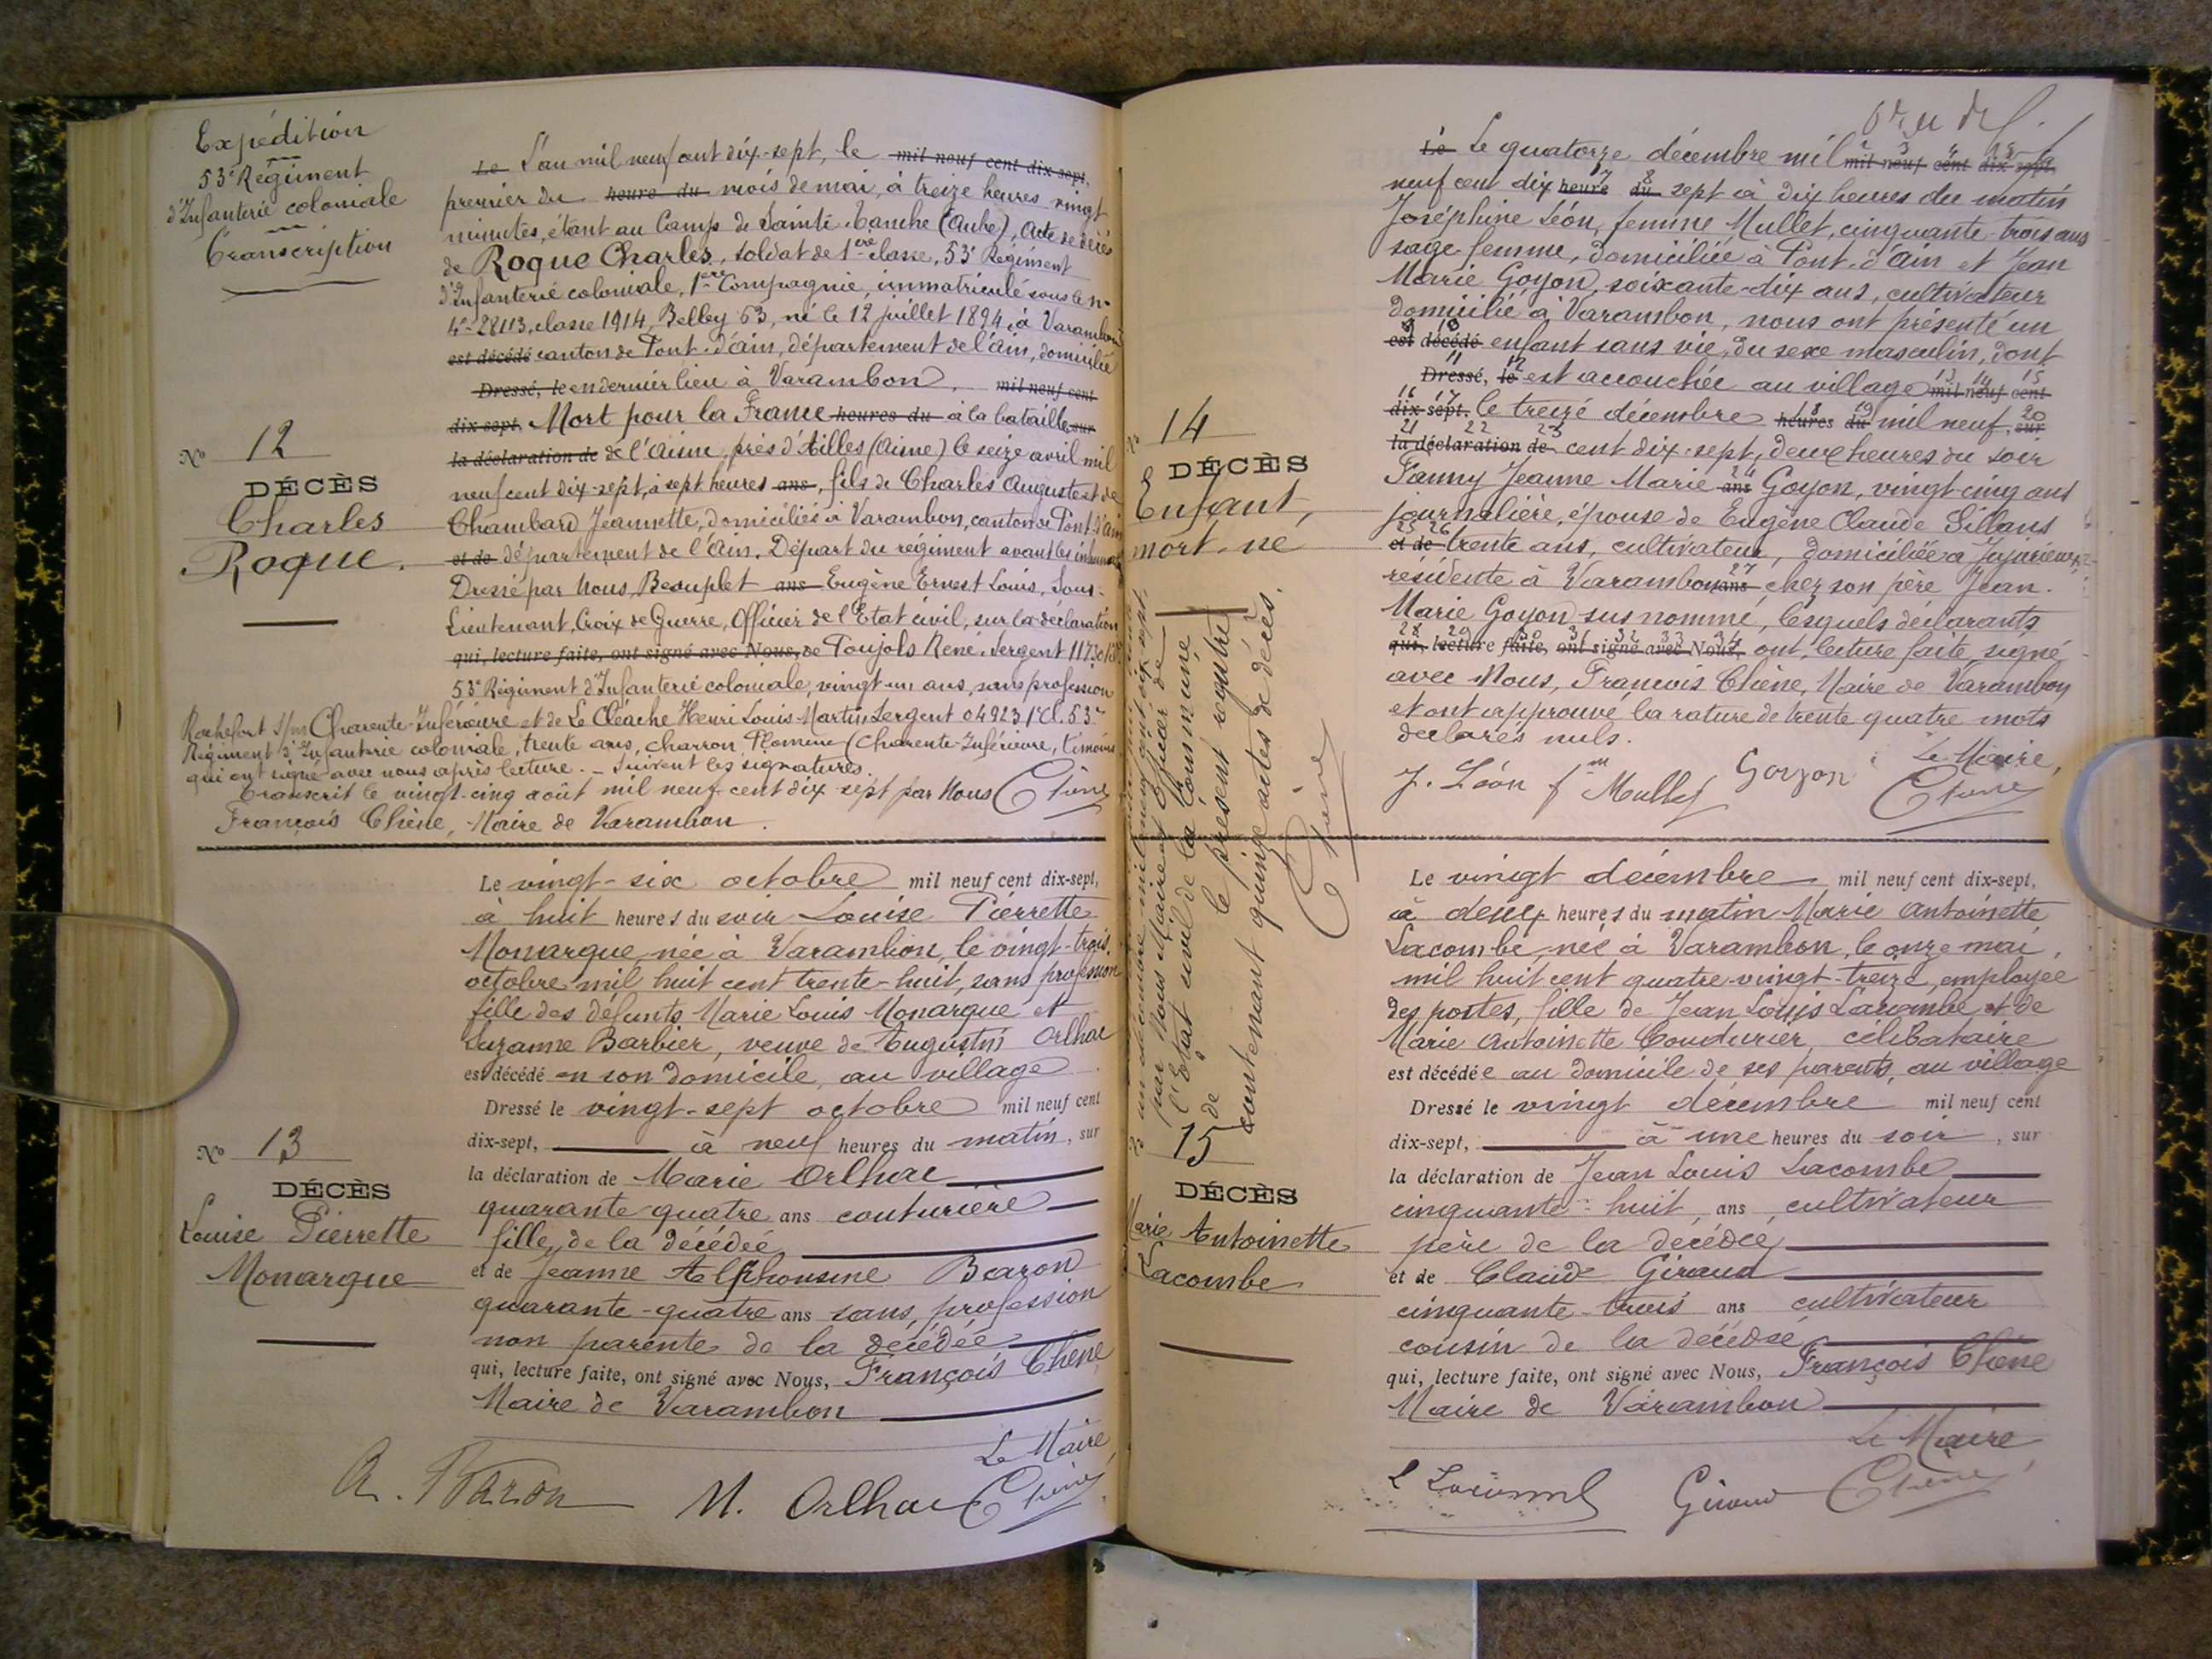 Expédition
53e Régiment
d'Infanterie coloniale
Transcription
Le L'an mil neuf cent dix-sept, le mil neuf cent dix sept,
premier du heure du mois de mai, à treize heures vingt
minutes, étant au Camp de Sainte-Tanche (Aube), Acte de décès
de Roque Charles, soldat de 1ère classe, 53e Régiment
d'Infanterie coloniale, 1ère Compagnie, immatriculé sous le no
classe 1914, Belley 63, né le 12 juillet 1894, à Varambon
est décédé canton de Pont-d'Ain, département de l'Ain, domicilié
Dressé, le en dernier lieu à Varambon, mil neuf cent
dix sept, Mort pour la France heures du à la bataille sur
la déclaration de de l'Aisne, près d'Ailles (Aisne) le seize avril mil
neuf cent dix-sept, à sept heures ans, fils de Charles Auguste et de
Chambard Jeannette, domiciliés à Varambon, canton de Pont-d'Ain
et de département de l'Ain. Départ du régiment avant les
Dressé par Nous, Beouplet ans Eugène Ernest Louis, Sous-
Lieutenant, Croix de Guerre, Officier de l'Etat civil, sur la déclaration
qui, lecture faite, ont signé avec Nous, de Toujols René, Sergent
53e Régiment d'Infanterie coloniale, vingt-un ans, sans profession
Rochefort s/m Charente-Inférieure et de Le Cléache Henri Louis-Martin Sergent 04923 1e Cl. 53e
Régiment d'Infanterie coloniale, trente ans, charron, (Charente-Inférieure, témoins
qui ont signé avec nous après lecture. - Suivent les signatures.
Transcrit le vingt-cinq août mil neuf cent dix sept par Nous Chêne
François Chêne, Maire de Varambon.
No 12
DÉCÈS
Charles
Roque.
Le vingt-six octobre mil neuf cent dix-sept,
à huit heures du soir Louise Pierrette
Monarque, née à Varambon, le vingt-trois
octobre mil huit cent trente-huit, sans profession
fille des défunts Marie Louis Monarque et
Suzanne Barbier, veuve de Augustin Orlhac
est décédé en son domicile, au village
Dressé le vingt-sept octobre mil neuf cent
dix-sept, à neuf heures du matin, sur
la déclaration de Marie Orlhac
quarante quatre ans couturière
fille de la décédée
et de Jeanne Alphonsine Baron
quarante-quatre ans sans profession
non parente de la décédée
qui, lecture faite, ont signé avec Nous, François Chêne
Maire de Varambon
Le Maire,
A. Baron M. Orlhac Chêne
No 13
DÉCÈS
Louise Pierrette
Monarque
Le Le quatorze décembre mil mil neuf cent dix sept,
neuf cent dix heure du sept à dix heures du matin
Joséphine Léon, femme Mullet, cinquante-trois ans
sage femme, domiciliée à Pont-d'Ain et Jean
Marie Goyon, soixante-dix ans, cultivateur
domicilié à Varambon, nous ont présenté un
est décédé enfant sans vie, du sexe masculin, dont
Dressé, le est accouchée au village mil neuf cent
dix sept, le treize décembre heures du mil neuf, sur
la déclaration de cent dix-sept, deux heures du soir
Fanny Jeanne Marie ans Goyon, vingt-cinq ans
journalière, épouse de Eugène Claude Sillans
et de trente ans, cultivateur, domiciliée à Jujurieux,
résidente à Varambon ans chez son père Jean-
Marie Goyon sus nommé, lesquels déclarants
qui, lecture faite, ont signé avec Nous, ont, lecture faite, signé
avec Nous, François Chêne, Maire de Varambon
et ont approuvé la rature de trente quatre mots
déclarés nuls.
Le Maire,
J. Léon fm Mullet Goyon Chêne
No 14
DÉCÈS
Enfant,
mort-né
par Nous Maire et Officier de
l'Etat civil de la Commune
de le présent registre
contenant quinze actes de décès.
Chêne
Le vingt décembre mil neuf cent dix-sept,
à deux heures du matin Marie Antoinette
Lacombe, née à Varambon, le onze mai,
mil huit cent quatre-vingt-treize, employée
des postes, fille de Jean Louis Lacombe et de
Marie Antoinette Coudurier, célibataire
est décédée au domicile de ses parents, au village
Dressé le vingt décembre mil neuf cent
dix-sept, à une heures du soir, sur
la déclaration de Jean Louis Lacombe
cinquante-huit ans, cultivateur
père de la décédée
et de Claude Giraud
cinquante-trois ans cultivateur
cousin de la décédée
qui, lecture faite, ont signé avec Nous, François Chêne
Maire de Varambon
Le Maire,
Giraud Chêne
No 15
DÉCÈS
Marie Antoinette
Lacombe